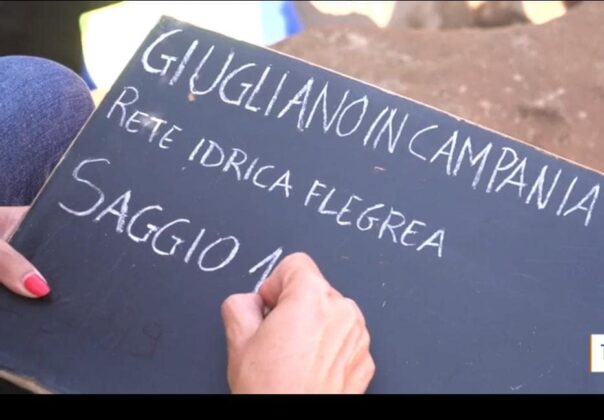 GIUGLIANO IN CAMPANIA
RETE IDRICA FLEGREA
SAGGIO 1